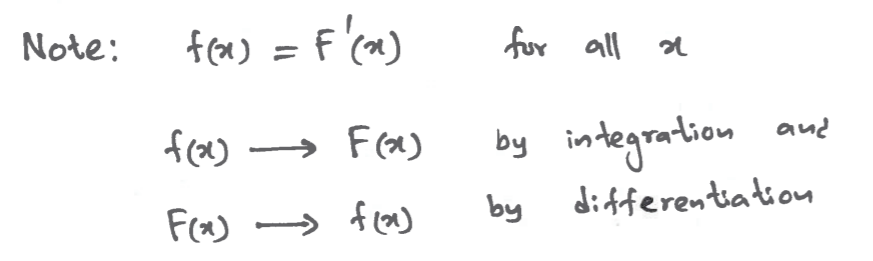 Note: f(x) = F'(x) for all x
f(x) → F(x) by integration and
F(x) → f(x) by differentiation